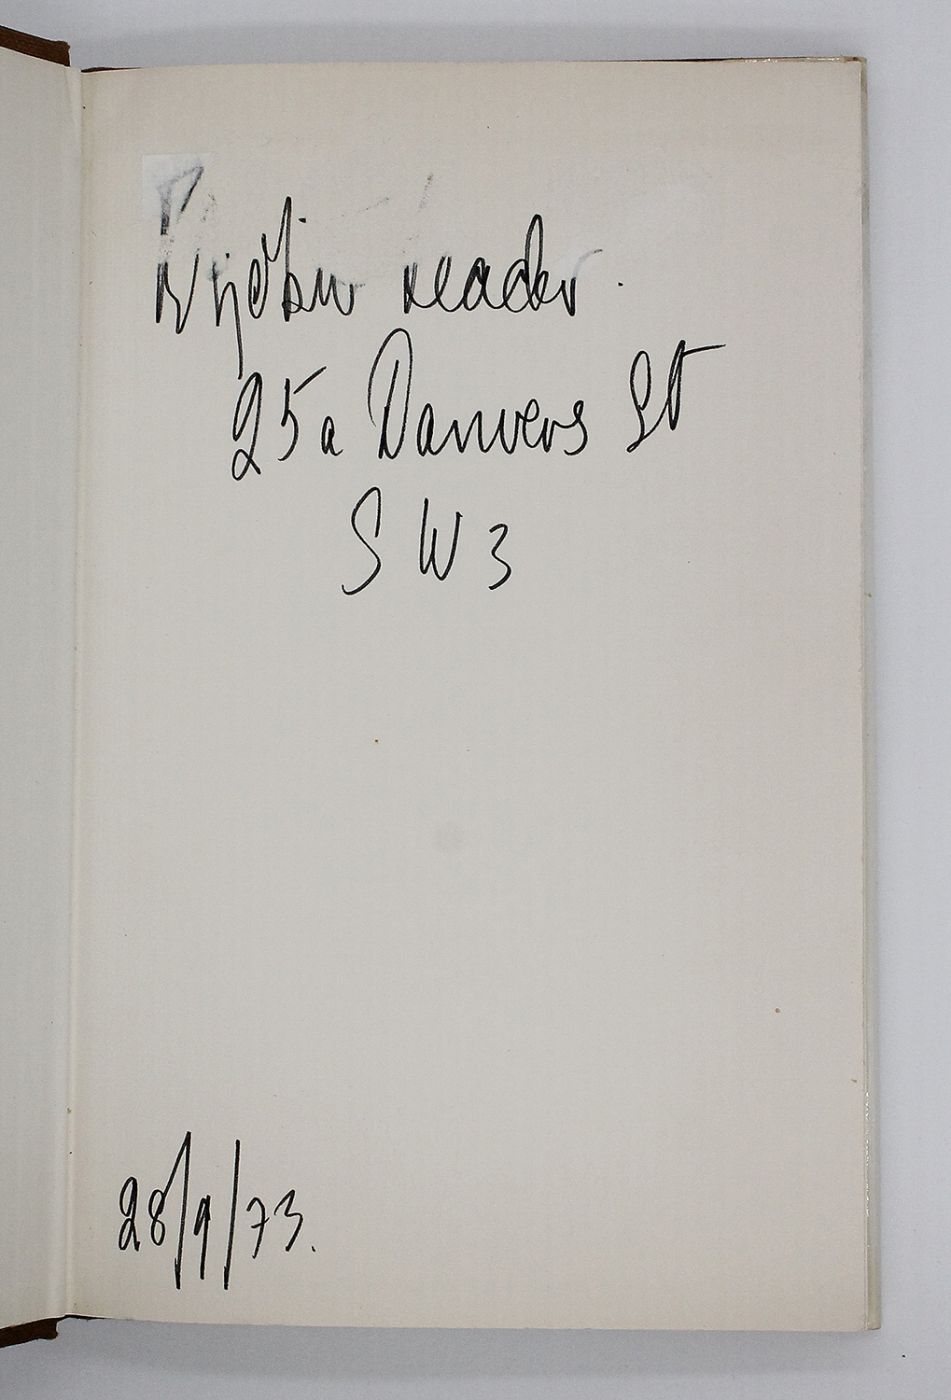 reader.
25a Danvers St
SW3
28/9/73.